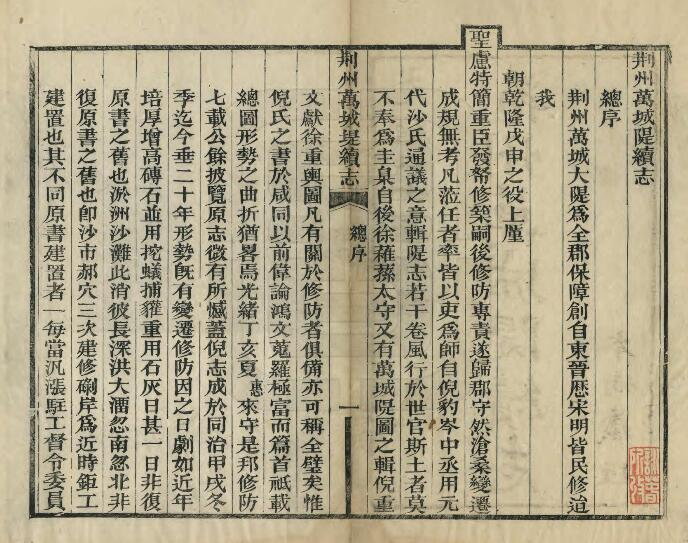 荆州萬城隄續志
總序
荆州萬城大隄爲全郡保障創自東晉歷宋明皆民修迨
我
朝乾隆戊申之役上廑
聖慮特簡重臣發帑修築嗣後修防專責遂歸郡守然滄桑變遷
成規無考凡蒞任者率皆以吏爲師自倪豹岑中丞用元
代沙氏通議之意輯隄志若干卷風行於世官斯土者莫
不奉爲圭臬自後徐蓀太守又有萬城隄圖之輯倪重
荆州萬城堤續志
總序
一
文獻徐重輿圖凡有關於修防者俱備亦可稱全璧矣惟
倪氏之書於咸同以前偉論鴻文蒐羅極富而篇首祗載
總圖形勢之曲折猶畧焉光緒丁亥夏惠來守是邦修防
七載公餘披覽原志微有所憾蓋倪志成於同治甲戌冬
季迄今垂二十年形勢旣有變遷修防因之日劇如近年
培厚增高磚石並用挖蟻捕獾重用石灰日甚一日非復
原書之舊也淤洲沙灘此消彼長深洪大溜忽南忽北非
復原書之舊也卽沙市郝穴三次建修磯岸爲近時鉅工
建置也其不同原書建置者一每當汎漲駐工督令委員